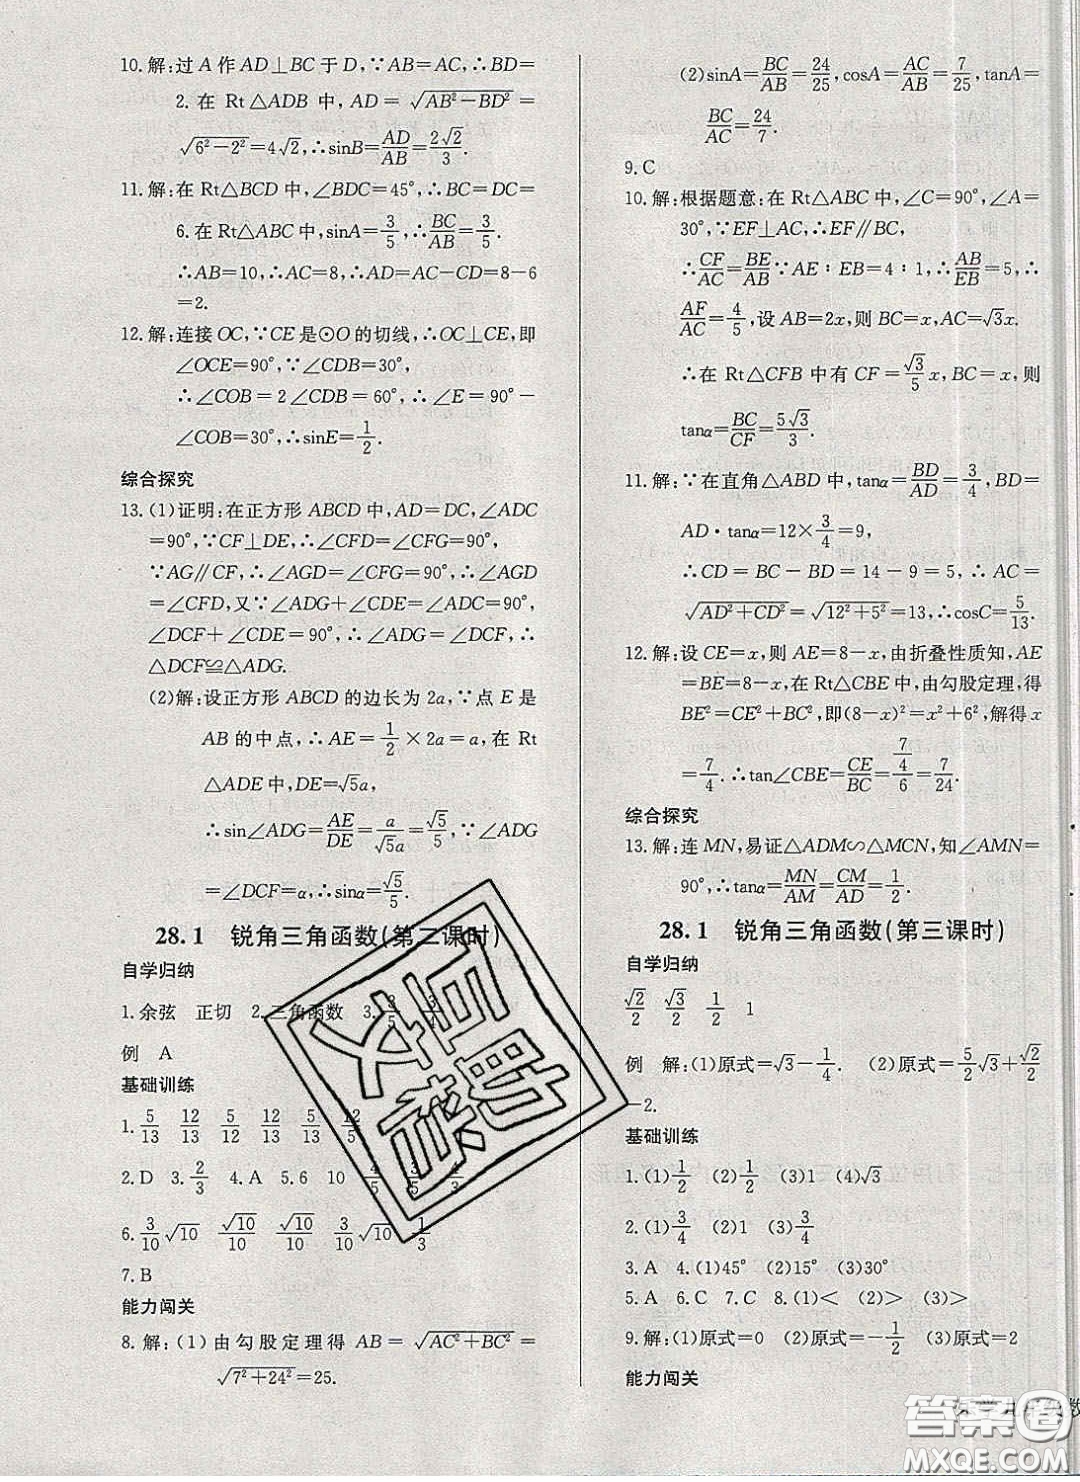 10. 解:过 A 作 AD⊥BC 于 D,∵AB=AC,∴BD=
2. 在 Rt△ADB 中, AD = √(AB²-BD²) =
√(6²-2²)=4√2,∴sinB=AD/AB=2√2/3.
11. 解:在 Rt△BCD 中,∠BDC=45°,∴BC=DC=
6. 在 Rt△ABC 中,sinA=3/5,∴BC/AB=3/5.
∴AB=10,∴AC=8,∴AD=AC-CD=8-6
=2.
12. 解:连接 OC,∵CE 是⊙O 的切线,∴OC⊥CE,即
∠OCE=90°,∵∠CDB=30°,
∴∠COB=2∠CDB=60°,∴∠E=90°-
∠COB=30°,∴sinE=1/2.
综合探究
13. (1)证明:在正方形 ABCD 中,AD=DC,∠ADC
=90°,∵CF⊥DE,∴∠CFD=∠CFG=90°,
∵AG∥CF,∴∠AGF=∠CFG=90°,∴∠AGD
=∠CFD,又∵∠ADG+∠CDE=∠ADC=90°,
∠DCF+∠CDE=90°,∴∠ADG=∠DCF,∴
△DCF≌△ADG.
(2)解:设正方形 ABCD 的边长为 2a,∵点 E 是
AB 的中点,∴AE=1/2×2a=a,在 Rt
△ADE 中,DE=√5a,
∴sin∠ADG=AE/DE=a/√5a=√5/5,∵∠ADG
=∠DCF=α,∴sinα=√5/5.
28.1 锐角三角函数(第二课时)
自学归纳
1. 余弦 正切 2. 三角函数 3. 3/5 3/4
例 A
基础训练
1. 5/13 12/13 12/13 5/13 5/12 12/5
2. D 3. 2/3 4. A 5. 6 10 4/5 4/5
6. 3/10√10 √10/10 √10/10 3/10√10 1/3
7. B
能力闯关
8. 解:(1)由勾股定理得 AB = √(AC²+BC²) =
√(7²+24²)=25.
(2)sinA=BC/AB=24/25,cosA=AC/AB=7/25,tanA=
BC/AC=24/7.
9. C
10. 解:根据题意:在 Rt△ABC 中,∠C=90°,∠A=
30°,∵EF⊥AC,∴EF∥BC,
∴CF/AC=BE/AB∵AE∶EB=4∶1,∴AB/EB=5,∴
AF/AC=4/5,设 AB=2x,则 BC=x,AC=√3x.
∴在 Rt△CFB 中有 CF=√3/5x,BC=x,则
tanα=BC/CF=5√3/3.
11. 解:∵在直角△ABD 中,tanα=BD/AD=3/4,BD=
AD·tanα=12×3/4=9,
∴CD=BC-BD=14-9=5,∴AC=
√(AD²+CD²)=√(12²+5²)=13,∴cosC=5/13.
12. 解:设 CE=x,则 AE=8-x,由折叠性质知,AE
=BE=8-x,在 Rt△CBE 中,由勾股定理,得
BE²=CE²+BC²,即(8-x)²=x²+6²,解得 x
=7/4.∴tan∠CBE=CE/BC=(7/4)/6=7/24.
综合探究
13. 解:连 MN,易证△ADM∽△MCN,知∠AMN=
90°,∴tanα=MN/AM=CM/AD=1/2.
28.1 锐角三角函数(第三课时)
自学归纳
√2/2 √3/2 1/2 1
例 解:(1)原式=√3-1/4. (2)原式=5/2√3+√2/2
-2.
基础训练
1. (1)1/2 (2)1/2 (3)1 (4)√3
2. (1)3/4 (2)1 (3)3/4
3. A 4. (1)45° (2)15° (3)70°
5. A 6. C 7. C 8. (1)< (2)> (3)>
9. 解:(1)原式=0 (2)原式=-1/2 (3)原式=2
能力闯关
答案圈
MXQE.COM